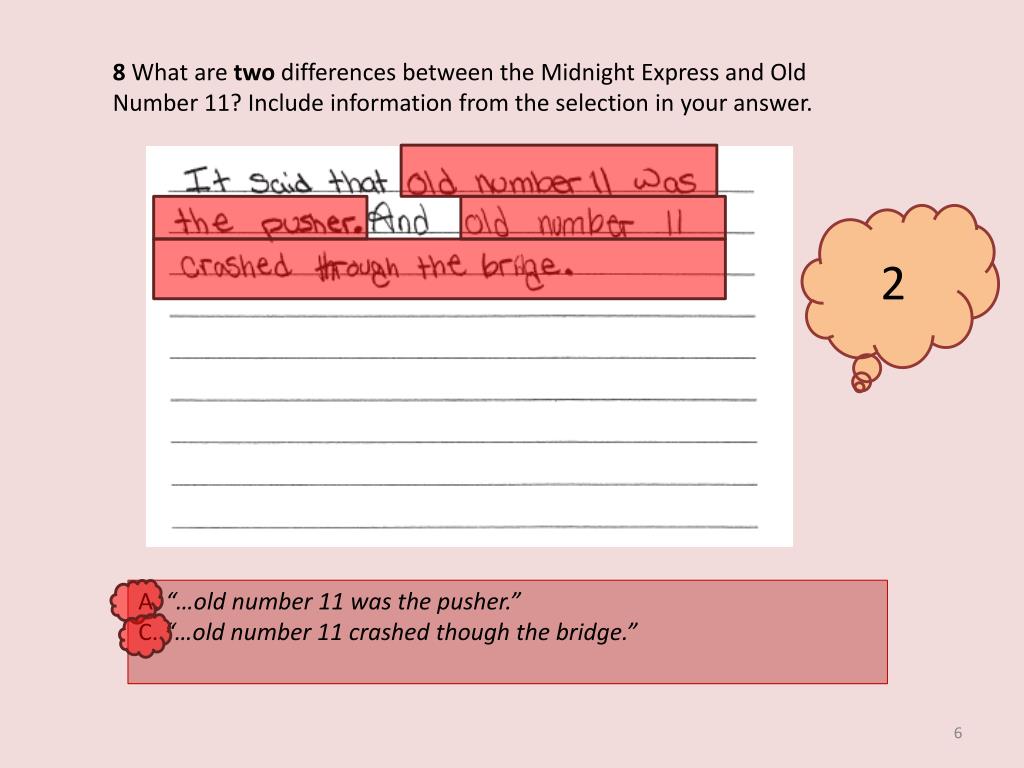 8 What are two differences between the Midnight Express and Old
Number 11? Include information from the selection in your answer.
It said that old number 11 was
the pusher. And old number 11
crashed through the brige.
2
A. “…old number 11 was the pusher.”
C. “…old number 11 crashed though the bridge.”
6